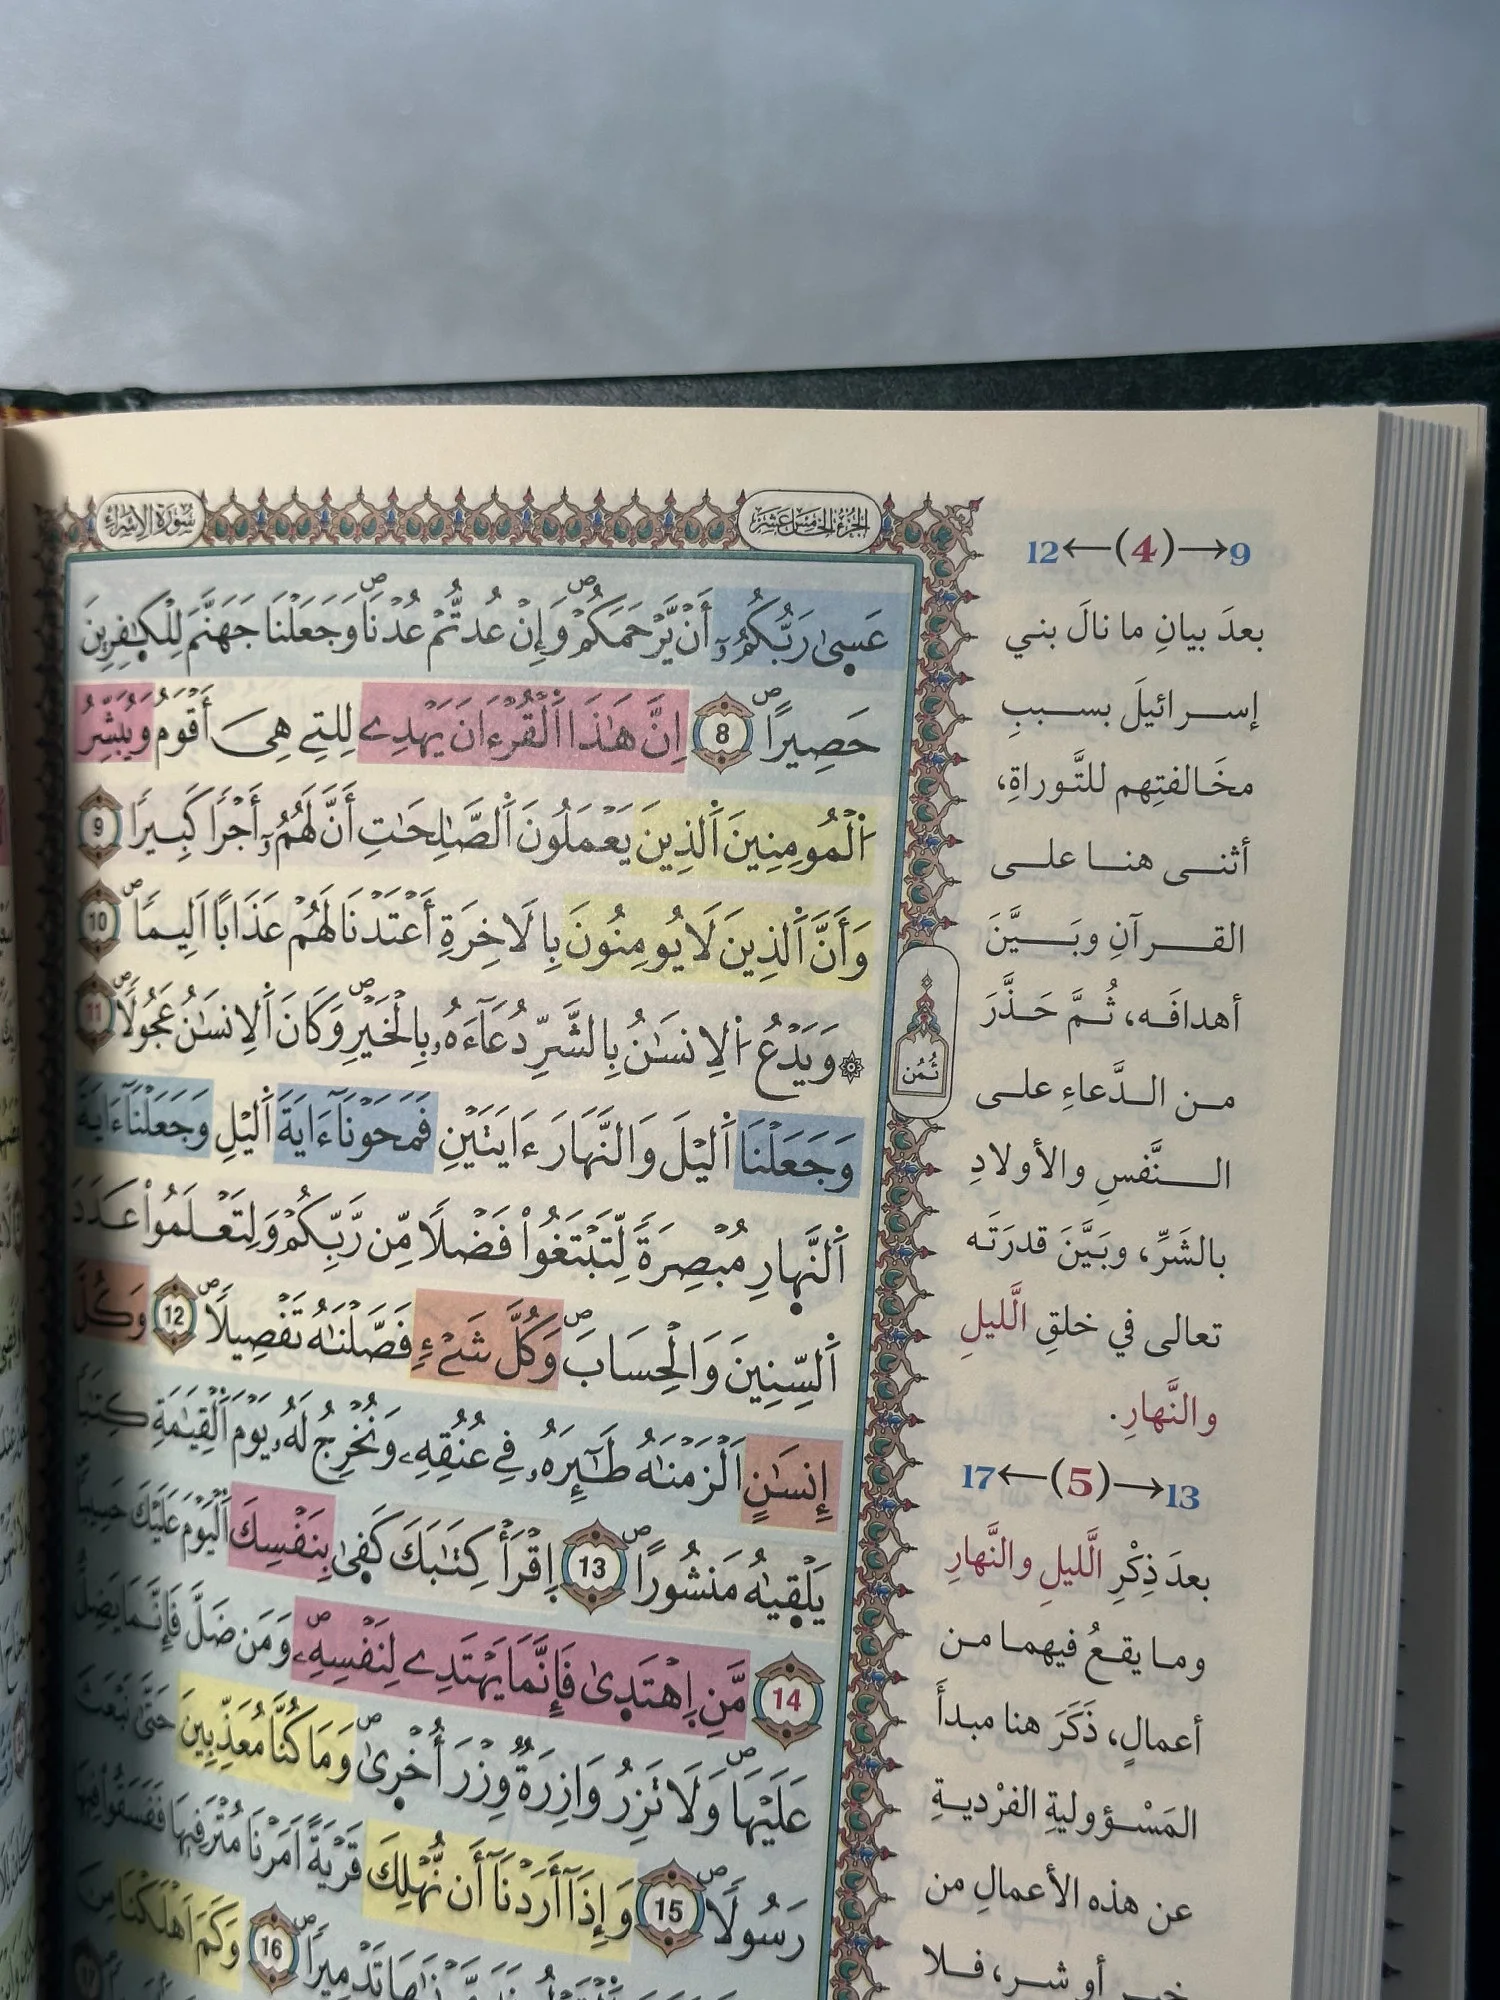 سورة الإسراء
الجزء الخامس عشر
عَسٜىٰ رَبُّكُمُۥٓ أَنْ يَّرْحَمَكُمْۖ وَإِنْ عُدتُّمْ عُدْنَاۖ وَجَعَلْنَا جَهَنَّمَ لِلْكٰٜفِرِينَ
حَصِيراًۖ 8 اِنَّ هَٰذَا اَ۬لْقُرْءَانَ يَهْدِے لِلتِے هِيَ أَقْوَمُ وَيُبَشِّرُ
اُ۬لْمُومِنِينَ اَ۬لذِينَ يَعْمَلُونَ اَ۬لصَّٰلِحَٰتِ أَنَّ لَهُمُۥٓ أَجْراً كَبِيراً 9
وَأَنَّ اَ۬لذِينَ لَا يُومِنُونَ بِالَاخِرَةِ أَعْتَدْنَا لَهُمْ عَذَاباً اَلِيماًۖ 10
۞ وَيَدْعُ اُ۬لِانسَٰنُ بِالشَّرِّ دُعَآءَهُۥ بِالْخَيْرِۖ وَكَانَ اَ۬لِانسَٰنُ عَجُولاًۖ 11
وَجَعَلْنَا اَ۬ليْلَ وَالنَّهَارَ ءَايَتَيْنِ فَمَحَوْنَآ ءَايَةَ اَ۬ليْلِ وَجَعَلْنَآ ءَايَةَ
اَ۬لنَّه۪ارِ مُبْصِرَةً لِّتَبْتَغُواْ فَضْلاً مِّن رَّبِّكُمْ وَلِتَعْلَمُواْ عَدَدَ
اَ۬لسِّنِينَ وَالْحِسَابَۖ وَكُلَّ شَےْءٍ فَصَّلْنَٰهُ تَفْصِيلاًۖ 12 وَكُلَّ
إِنسَٰنٍ اَلْزَمْنَٰهُ طَٰٓئِرَهُۥ فِے عُنُقِهِۦ وَنُخْرِجُ لَهُۥ يَوْمَ اَ۬لْقِيَٰمَةِ كِتَٰباً
يَلْقٜيٰهُ مَنشُوراًۖ 13 اِقْرَأْ كِتَٰبَكَ كَفٜىٰ بِنَفْسِكَ اَ۬لْيَوْمَ عَلَيْكَ حَسِيباً
14 مَّنِ اِ۪هْتَدٜىٰ فَإِنَّمَا يَهْتَدِے لِنَفْسِهِۦۖ وَمَن ضَلَّ فَإِنَّمَا يَضِلُّ
عَلَيْهَاۖ وَلَا تَزِرُ وَازِرَةٌ وِزْرَ أُخْرٜىٰۖ وَمَا كُنَّا مُعَذِّبِينَ حَتَّىٰ نَبْعَثَ
رَسُولاًۖ 15 وَإِذَآ أَرَدْنَآ أَن نُّهْلِكَ قَرْيَةً اَمَرْنَا مُتْرَفِيهَا فَفَسَقُواْ فِيهَا
تَدْمِيراًۖ 16 وَكَمَ اَهْلَكْنَا مِنَ
ثُمُن
9→(4)←12
بعدَ بيانِ ما نالَ بني
إسرائيلَ بسببِ
مخَالفتِهم للتَّوراةِ،
أثنى هنا على
القرآنِ وبَيَّنَ
أهدافَه، ثُمَّ حَذَّرَ
من الدَّعاءِ على
النَّفسِ والأولادِ
بالشَرِّ، وبَيَّنَ قدرَتَه
تعالى في خلقِ الَّليلِ
والنَّهارِ.
13→(5)←17
بعدَ ذِكْرِ الَّليلِ والنَّهارِ
وما يقعُ فيهما من
أعمالٍ، ذَكَرَ هنا مبدأَ
المَسْؤوليةِ الفرْديةِ
عن هذه الأعمالِ من
خيرٍ أو شرٍ، فلا